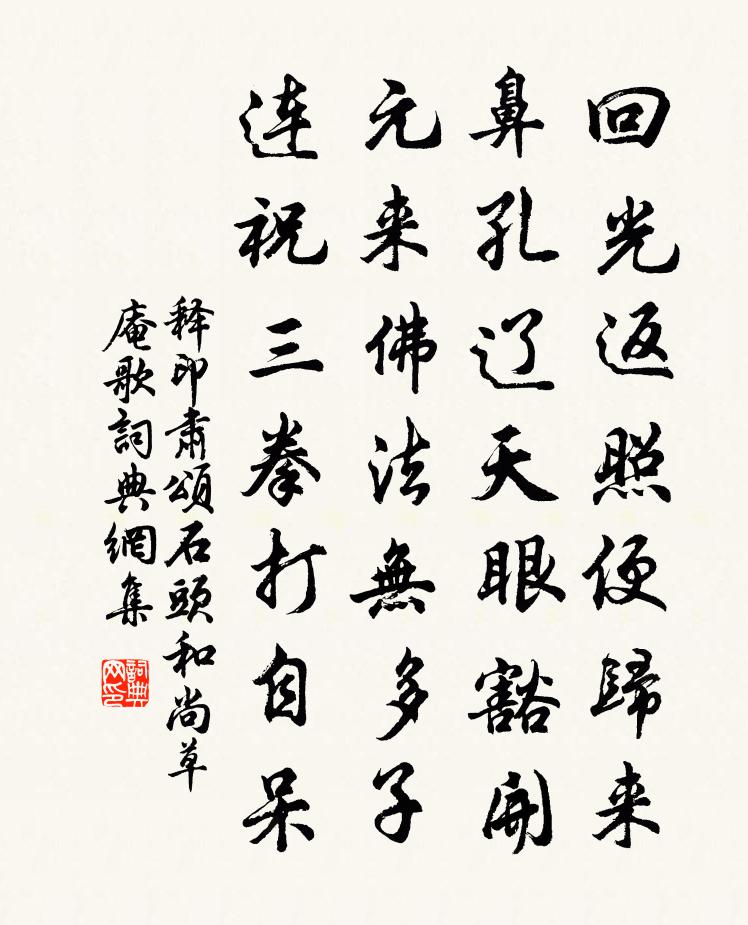 回光返照便歸来
鼻孔辽天眼豁開
元来佛法無多子
连祝三拳打自呆
释印肃頌石頭和尚草
庵歌詞典網集
詞典
网印